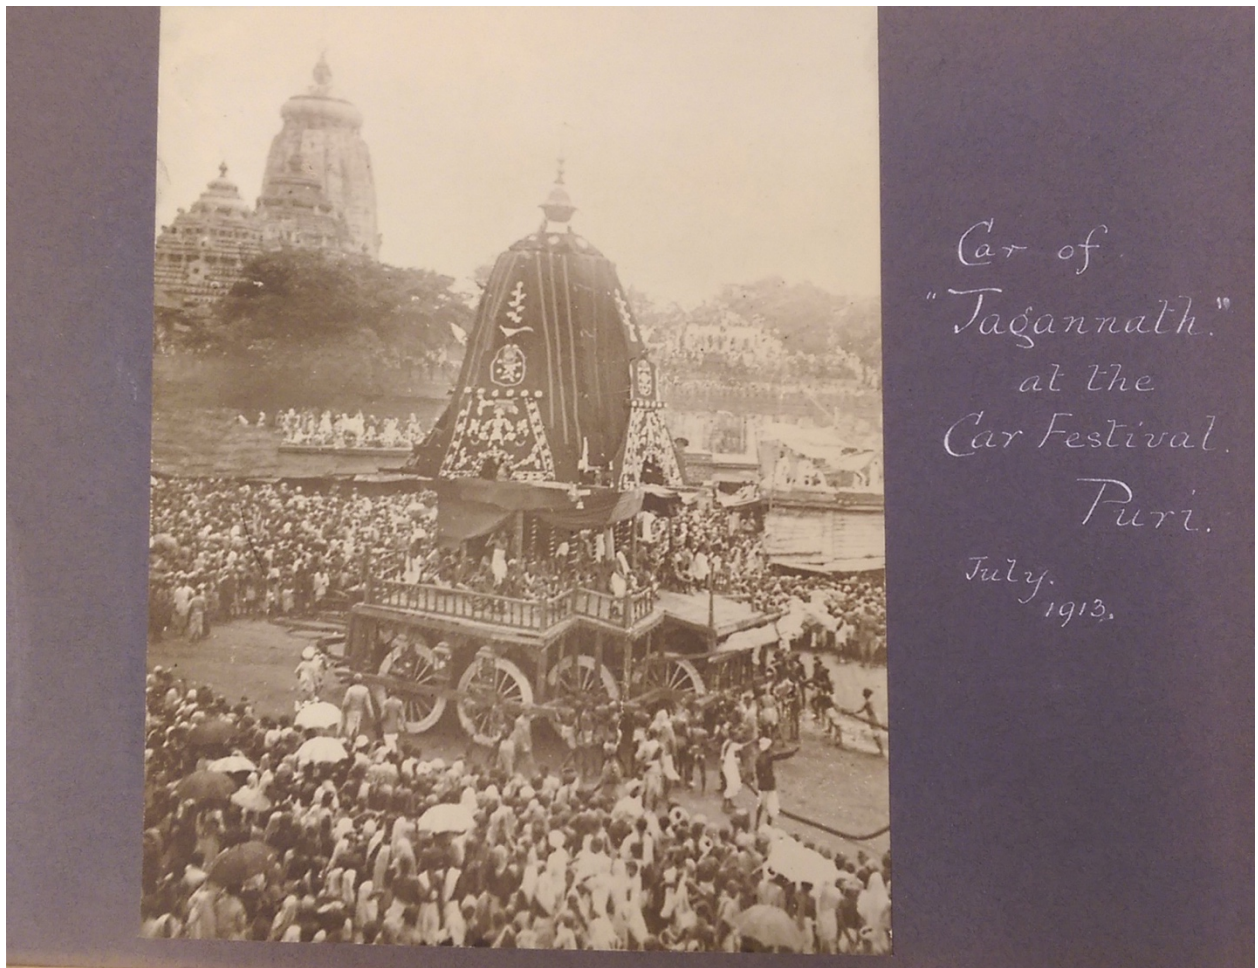 Car of
"Jagannath."
at the
Car Festival.
Puri.
July.
1913.